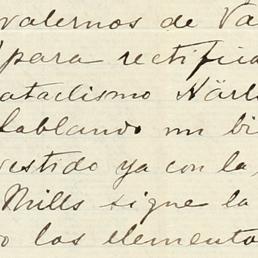 valernos de Va
para rectifica
ataclismo Härl
hablando un bi
vestido ya con la
Mills sigue la
o los elemento